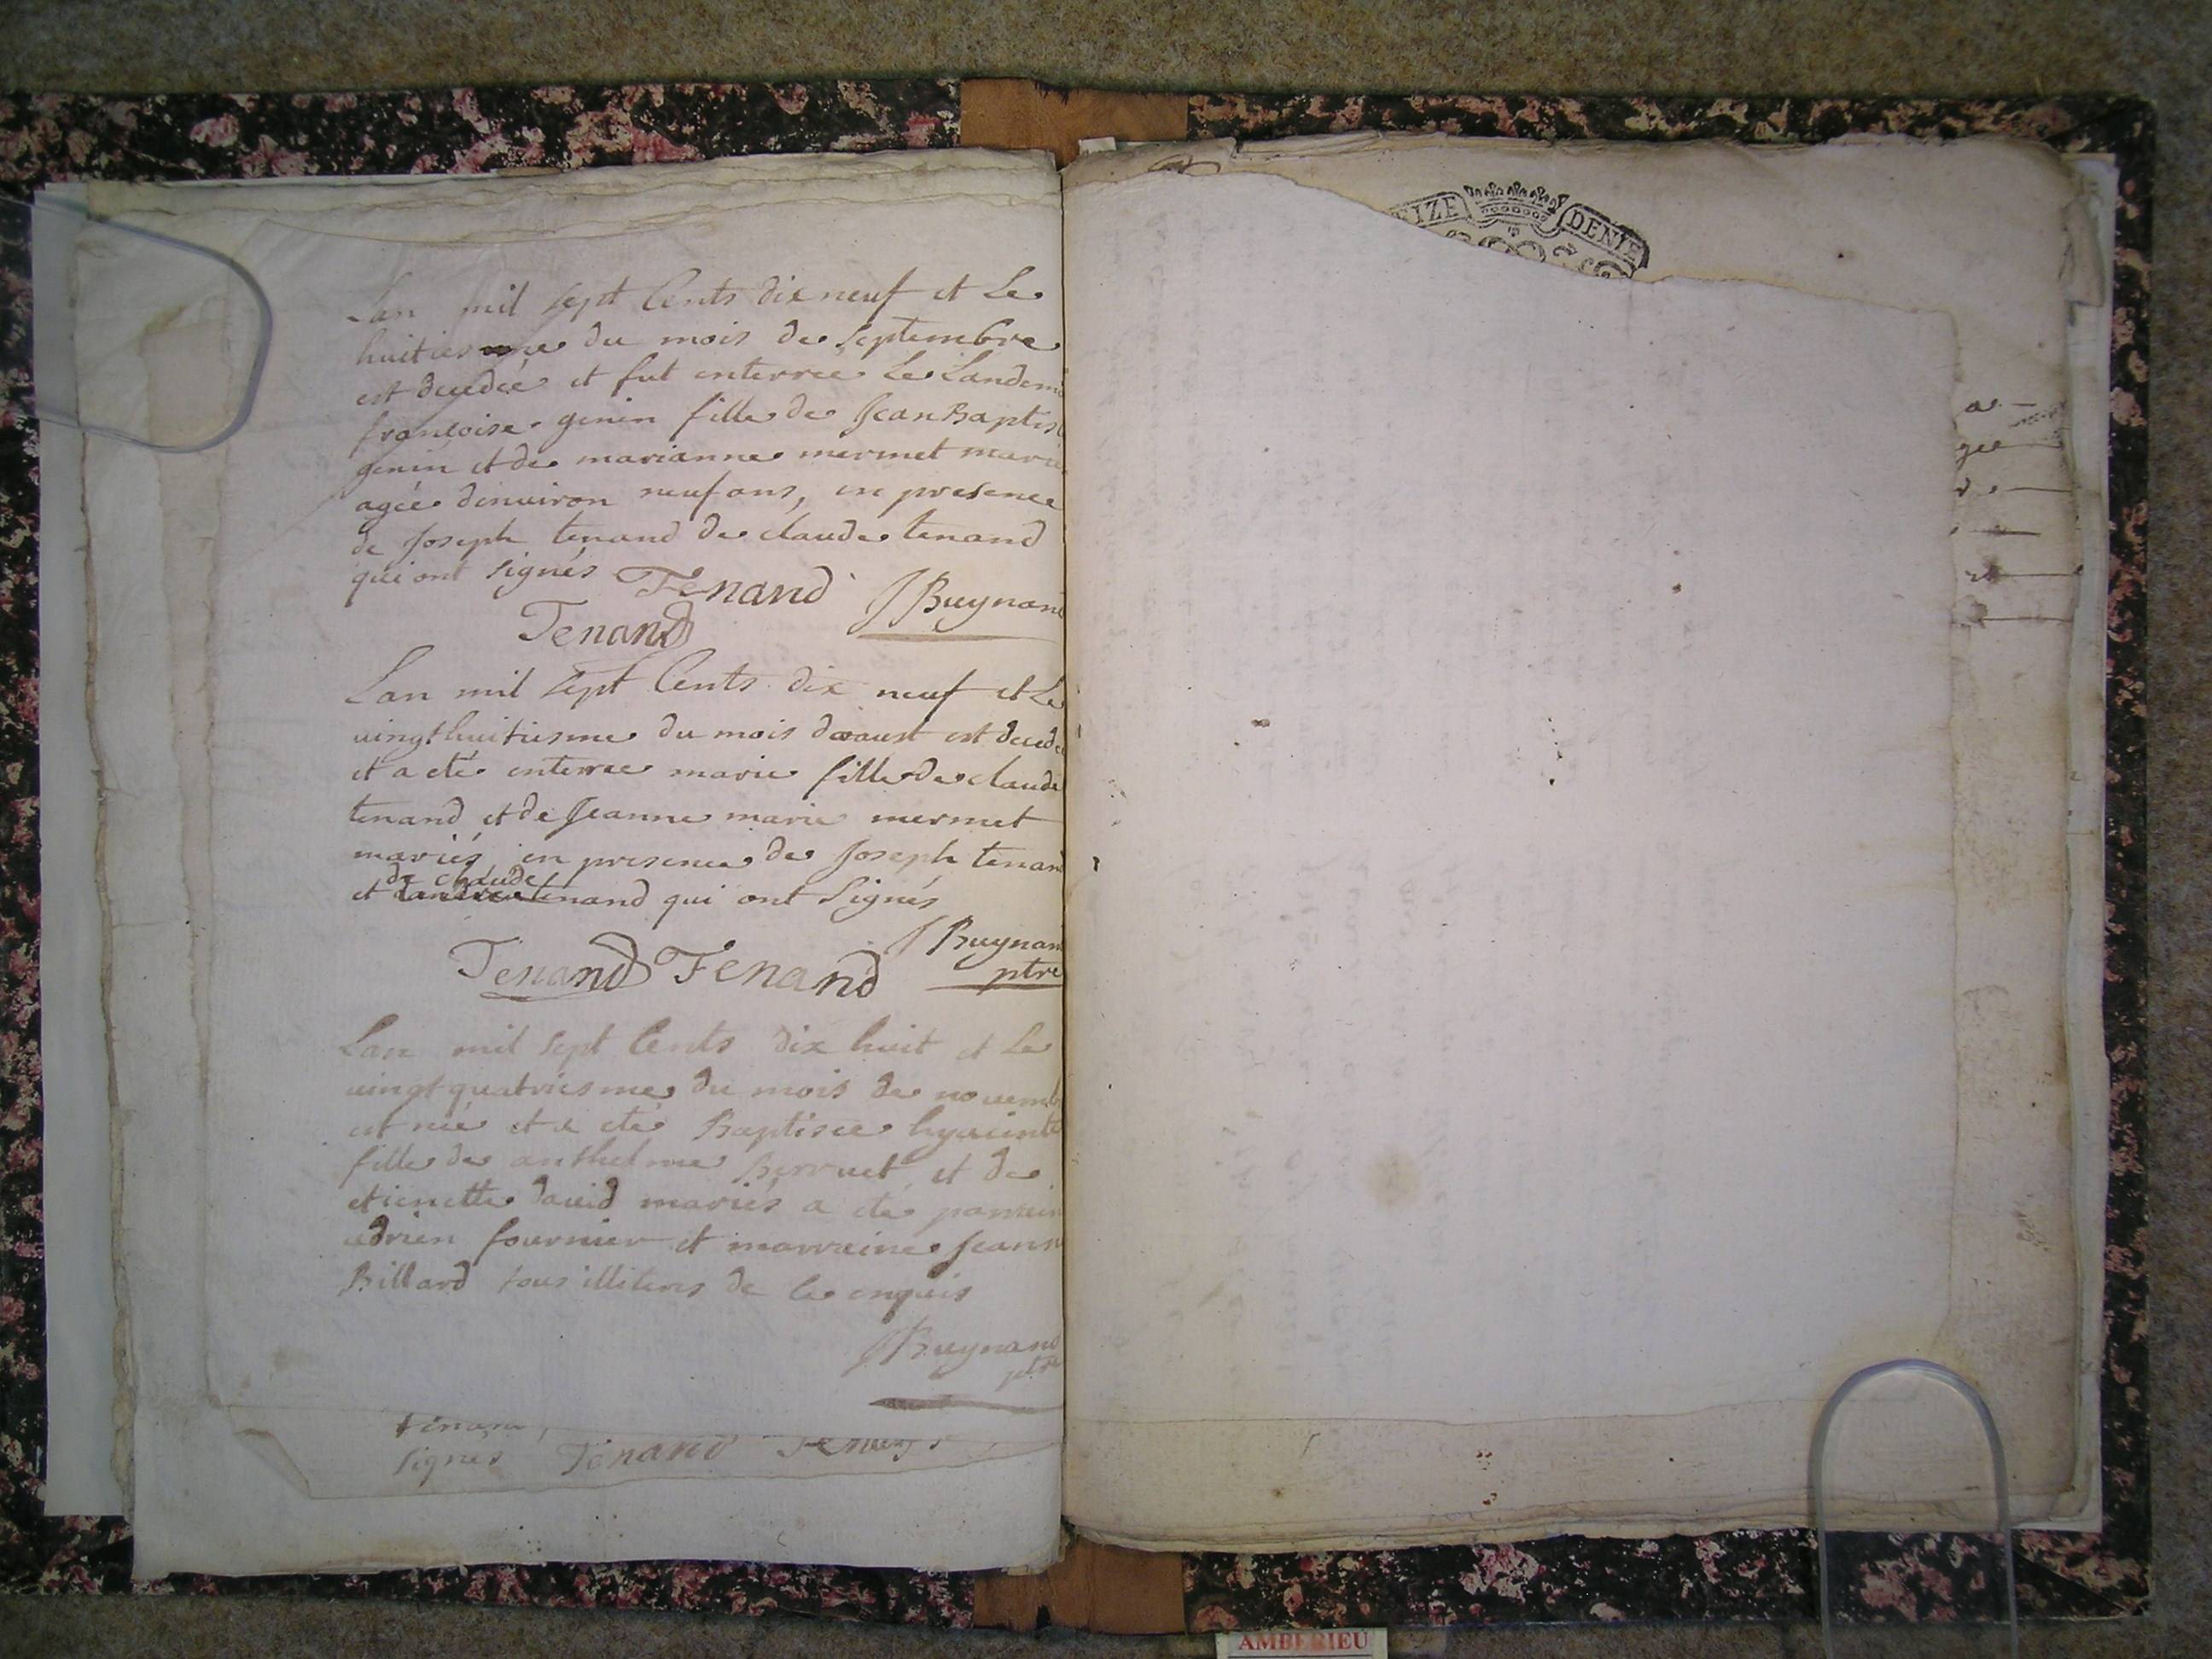 Lan mil sept Cents dix neuf et Le
huitiesme du mois de septembre
est decedée et fut enterree Le Landem
françoise genin fille de Jean Baptis
genin et de marianne mermet marie
agée denuiron neuf ans, en presence
de Joseph tenand de claude tenand
qui ont signés Tenand JBuynand
Tenand
Lan mil sept Cents dix neuf et Le
uingt huitiesme du mois daoust est deced
et a eté enterree marie fille de claude
tenand et de Jeanne marie mermet
mariés, en presence de Joseph tenand
de claude
et tenand qui ont signés
JBuynand
Tenand Tenand ptre
Lan mil sept Cents dix huit et Le
uingt quatriesme du mois de nouemb
est née et a eté Baptisee hyacinte
fille de anthelme Berruet et de
etienette dauid mariés a eté parrein
adrien fournier et marreine Jeanne
Billard tous illiteres de ce enquis
JBuynand
ptre
tenand,
signés Tenand Tenand
EIZE DENIE
a
gee
AMBERIEU